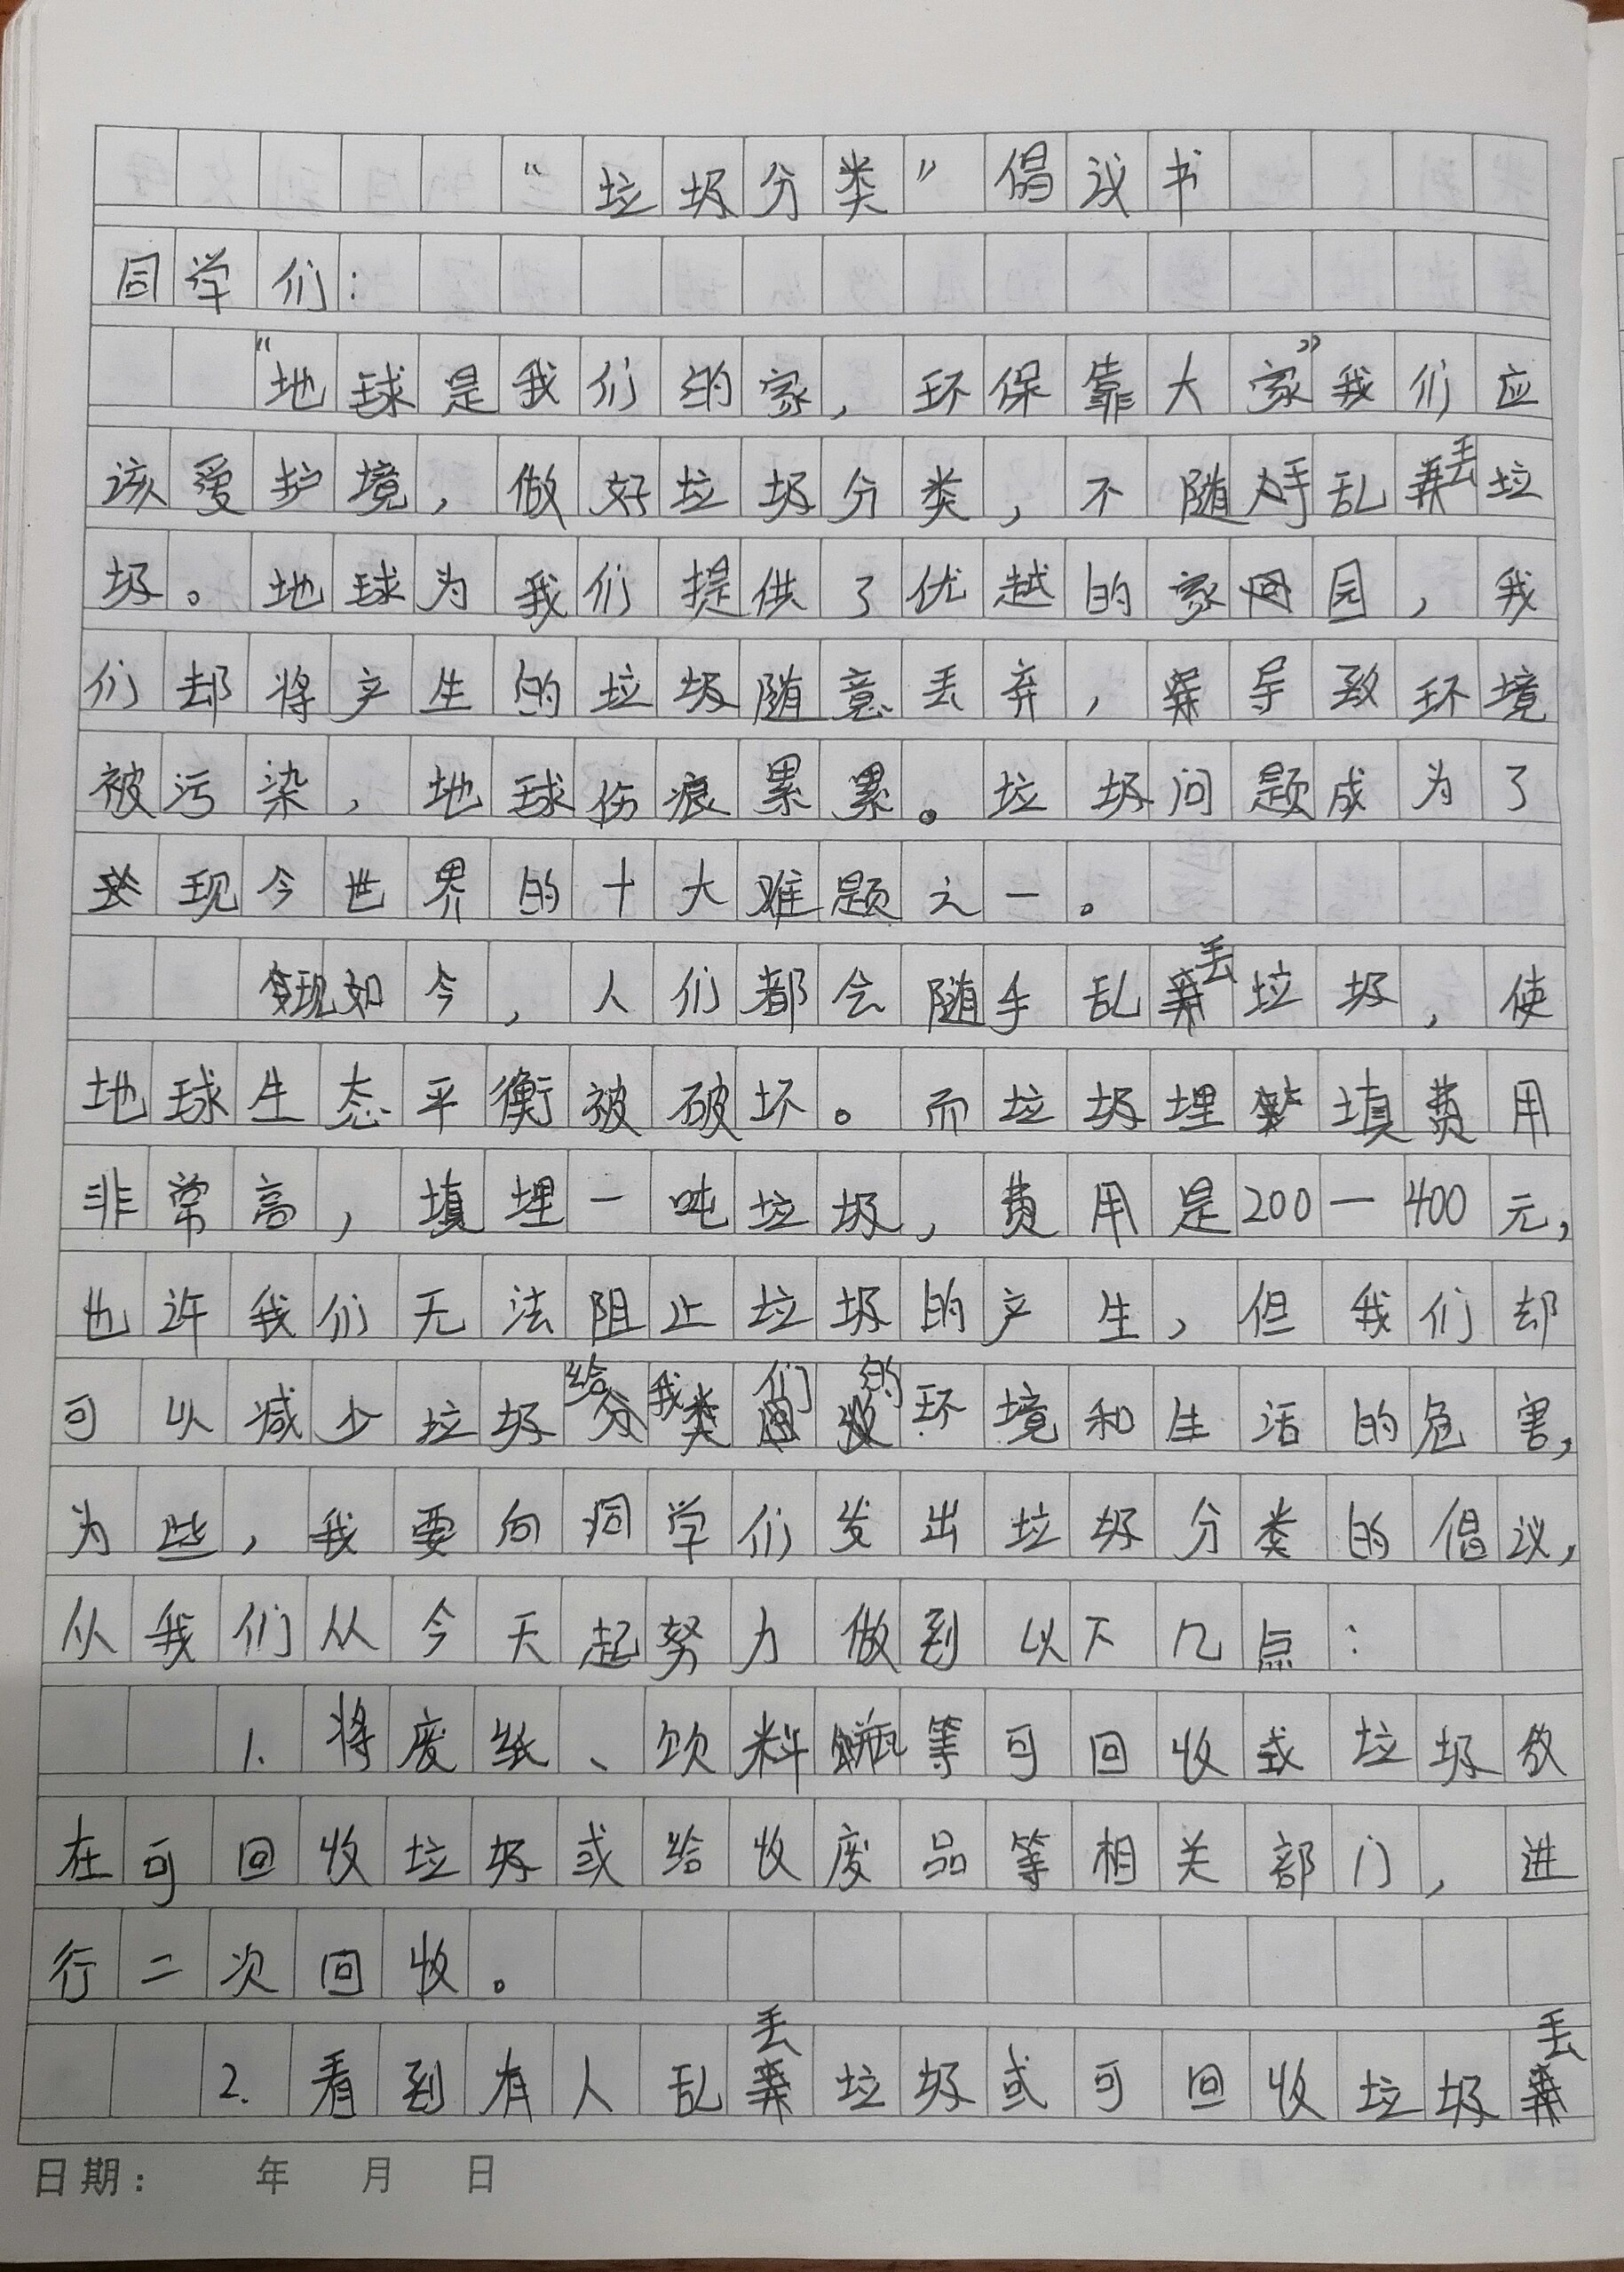 “垃圾分类”倡议书
同学们：
“地球是我们的家，环保靠大家”我们应
该爱护境，做好垃圾分类，不随手乱丢垃
圾。地球为我们提供了优越的家园，我
们却将产生的垃圾随意丢弃，导致环境
被污染，地球伤痕累累。垃圾问题成为了
现今世界的十大难题之一。
现如今，人们都会随手乱丢垃圾，使
地球生态平衡被破坏。而垃圾埋填费用
非常高，填埋一吨垃圾，费用是200一400元，
也许我们无法阻止垃圾的产生，但我们却
可以减少垃圾给我们的环境和生活的危害，
为些，我要向同学们发出垃圾分类的倡议，
从我们从今天起努力做到以下几点：
1.将废纸、饮料瓶等可回收或垃圾放
在可回收垃圾或给收废品等相关部门，进
行二次回收。
2.看到有人乱丢垃圾或可回收垃圾丢
日期： 年 月 日